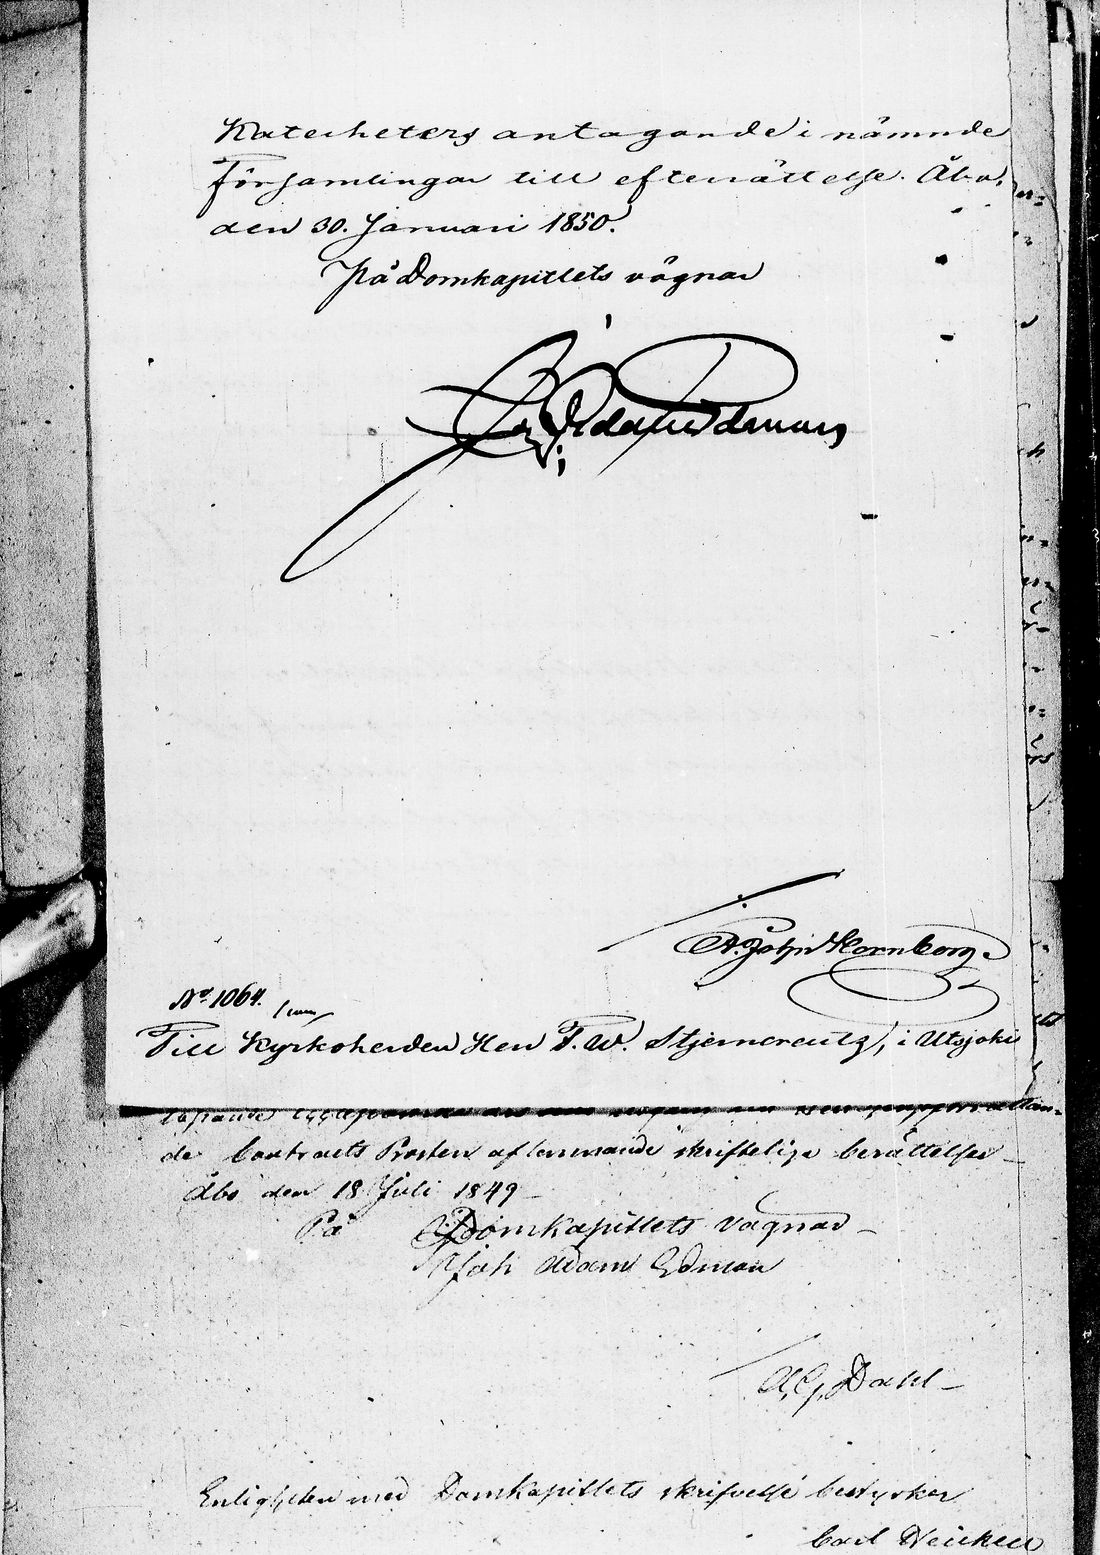 Katecheters antagande i nämnde
Församlingar till efterrättelse. Åbo,
den 30. Januari 1850.
På Domkapitlets vägnar
A. John Hornborg.
No 1064.
Till Kyrkoherden Herr F. W. Stjerncreutz, i Utsjoki
de Contracts Prosten aflemnande skriftelige berättelser
Åbo den 18 Juli 1849
På Domkapitlets vägnar
Joh Adam Edman
A. G. Dahl
Enligheten med Domkapitlets skrifvelse bestyrker
Carl